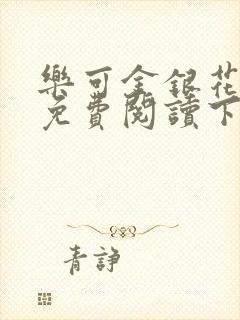 樂可金銀花
免費閱讀下
青諍